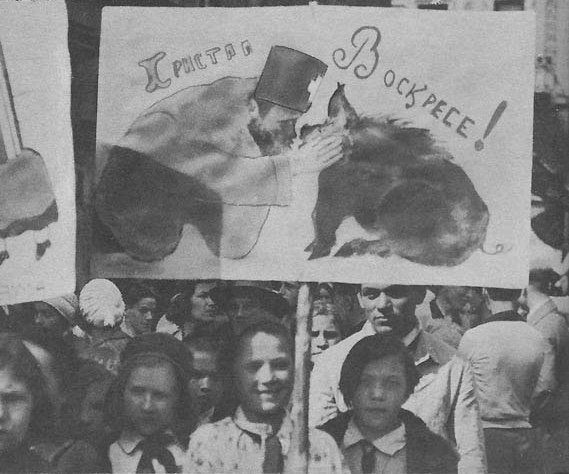 ХРИСТАА ВОСКРЕСЕ!